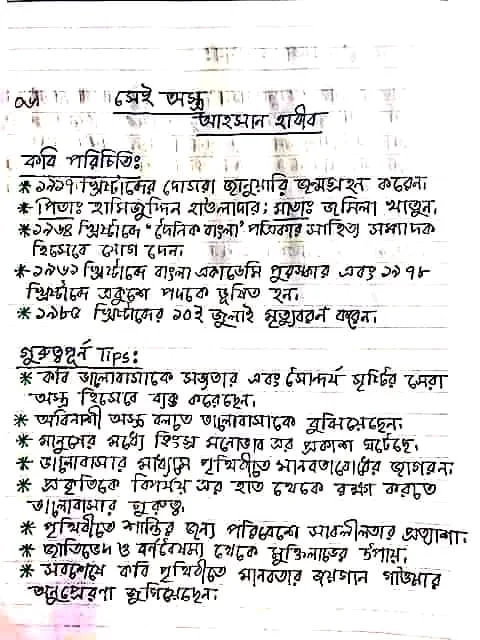 সেই অস্ত্র
আহসান হাবীব
কবি পরিচিতিঃ
* ১৯১৭ খ্রিস্টাব্দের দোসরা জানুয়ারি জন্মগ্রহন করেন।
* পিতাঃ হামিজুদ্দিন হাওলাদার; মাতাঃ জমিলা খাতুন।
* ১৯৬৪ খ্রিস্টাব্দে "দৈনিক বাংলা" পত্রিকার সাহিত্য সম্পাদক
হিসেবে যোগ দেন।
* ১৯৬১ খ্রিস্টাব্দে বাংলা একাডেমি পুরস্কার এবং ১৯৭৮
খ্রিস্টাব্দে একুশে পদকে ভূষিত হন।
* ১৯৮৫ খ্রিস্টাব্দের ১০ই জুলাই মৃত্যুবরন করেন।
গুরুত্বপূর্ন Tips:
* কবি ভালোবাসাকে সভ্যতার এবং সৌন্দর্য সৃষ্টির সেরা
অস্ত্র হিসেবে ব্যক্ত করেছেন।
* অবিনাশী অস্ত্র বলতে ভালোবাসাকে বুঝিয়েছেন।
* মানুষের মধ্যে হিংস্র মনোভাব এর প্রকাশ ঘটেছে।
* ভালোবাসার মাধ্যমে পৃথিবীতে মানবতাবোধের জাগরন।
* প্রকৃতিকে বিপর্যয় এর হাত থেকে রক্ষা করতে
ভালোবাসার গুরুত্ব
* পৃথিবীতে শান্তির জন্য পরিবেশে সাবলীলতার প্রত্যাশা।
* জাতিভেদ ও বর্ণবৈষম্য থেকে মুক্তিলাভের উপায়।
* সবশেষে কবি পৃথিবীতে মানবতার জয়গান গাওয়ার
অনুপ্রেরণা জুগিয়েছেন।